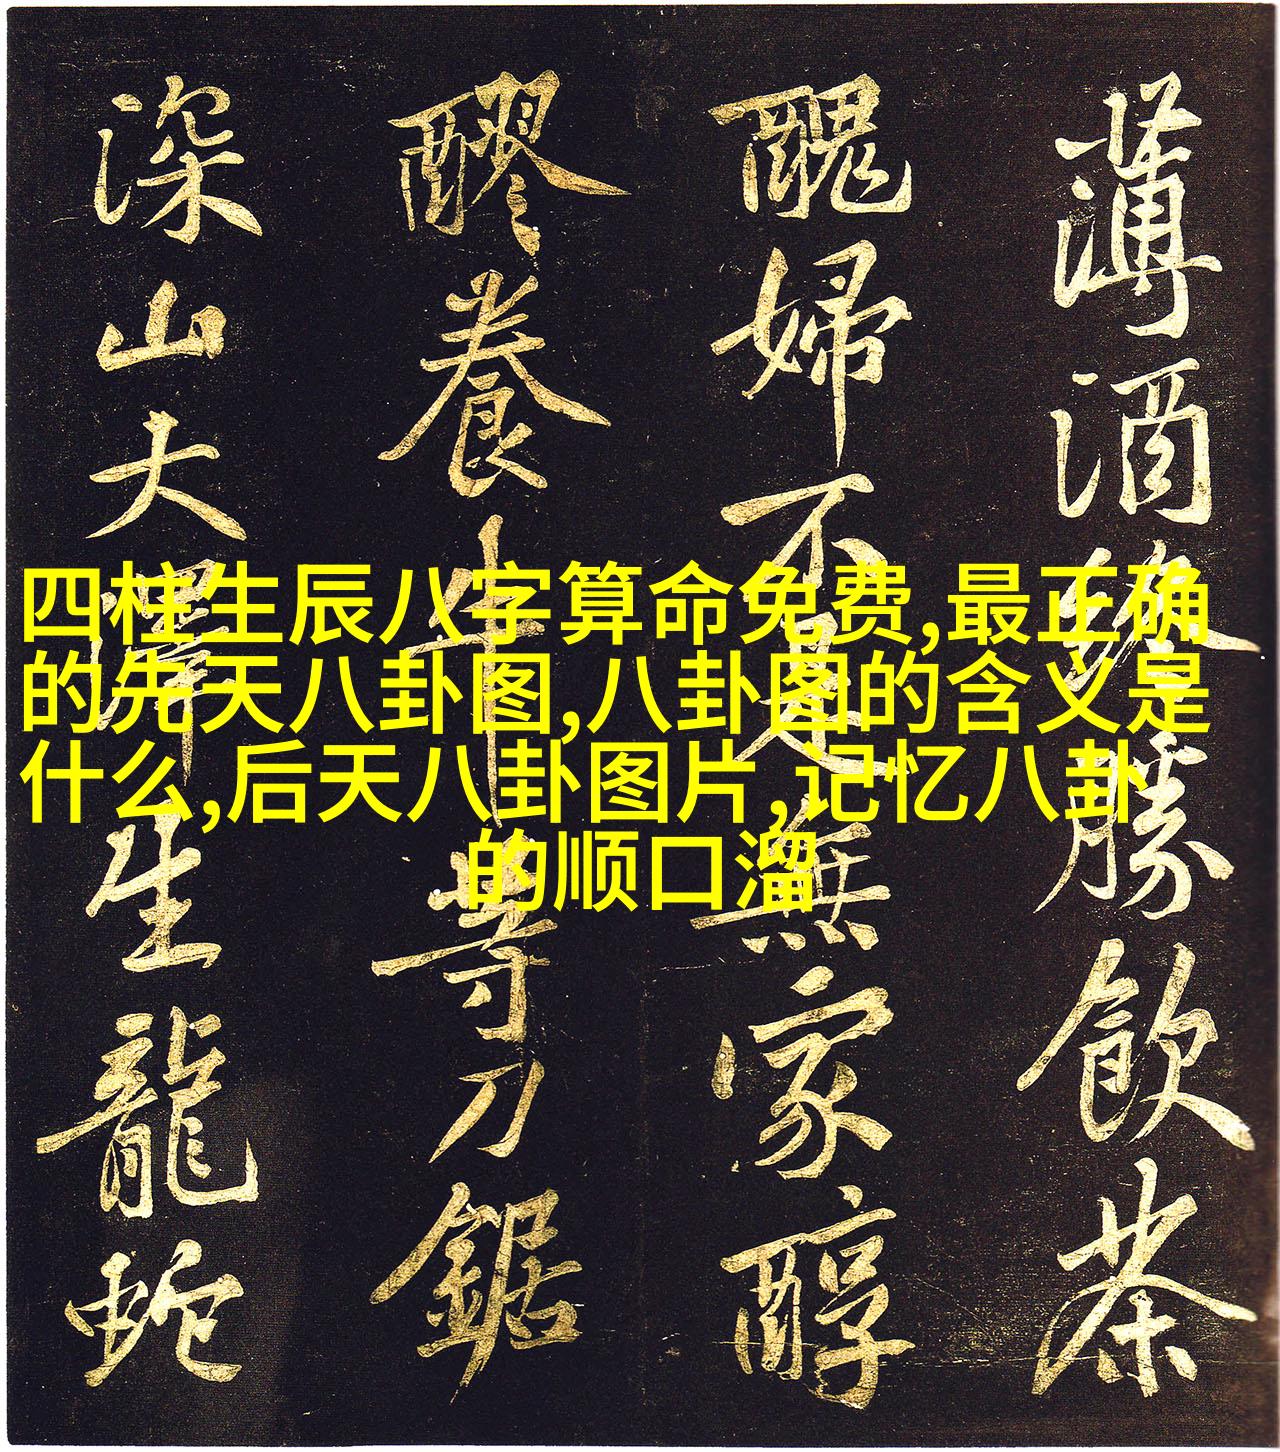 薄酒雖勝飲茶
醜婦不是無家
醇
醪養牛等刀鋸
深山大澤生龍蛇
四柱生辰八字算命免费,最正确
的先天八卦图,八卦图的含义是
什么,后天八卦图片,记忆八卦
的顺口溜